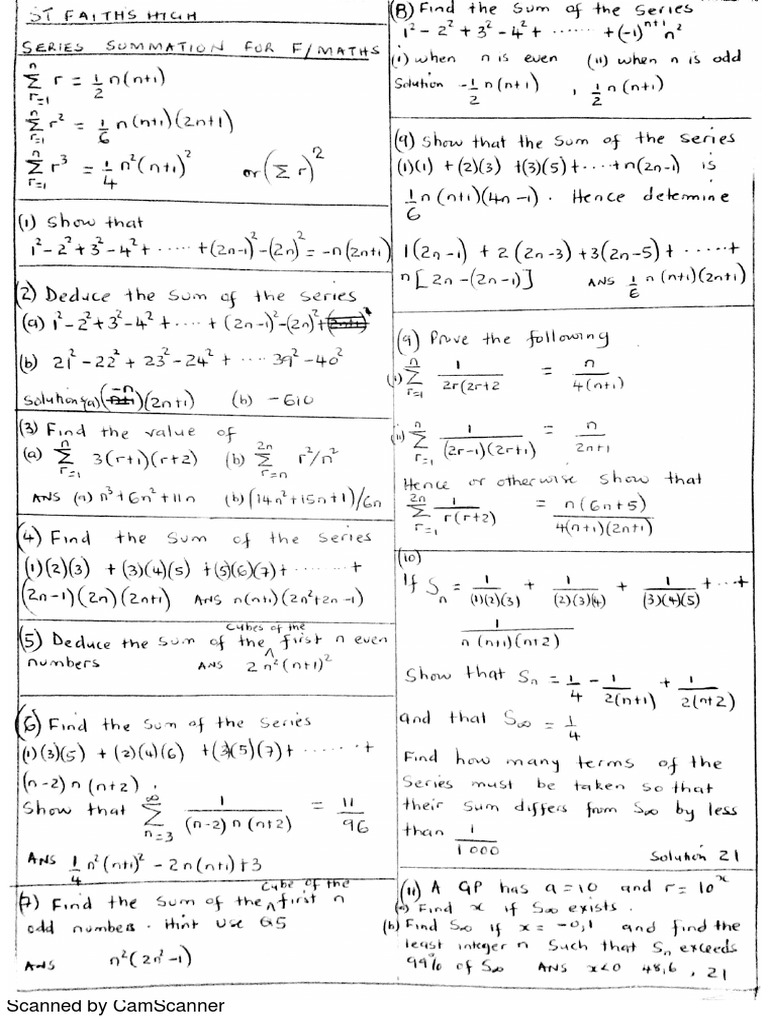 ST FAITHS HIGH
SERIES SUMMATION FOR F/MATHS
n Σ r=1 r = 1/2 n(n+1)
n Σ r=1 r² = 1/6 n(n+1)(2n+1)
n Σ r=1 r³ = 1/4 n²(n+1)² or (Σ r)²
(1) Show that
1² - 2² + 3² - 4² + ...... + (2n-1)² - (2n)² = -n(2n+1)
(2) Deduce the sum of the series
(a) 1² - 2² + 3² - 4² + .... + (2n-1)² - (2n)² +
(b) 21² - 22² + 23² - 24² + .... 39² - 40²
Solutions (a) (-n)(2n+1) (b) -610
(3) Find the value of
(a) n Σ r=1 3(r+1)(r+2) (b) 2n Σ r=n r²/n²
ANS (a) n³+6n²+11n (b) (14n²+15n+1)/6n
(4) Find the sum of the series
(1)(2)(3) + (3)(4)(5) + (5)(6)(7) + ........ +
(2n-1)(2n)(2n+1) ANS n(n+1)(2n²+2n-1)
(5) Deduce the sum of the cubes of the first n even
numbers ANS 2n²(n+1)²
(6) Find the sum of the series
(1)(3)(5) + (2)(4)(6) + (3)(5)(7) + ....... +
(n-2)n(n+2).
Show that ∞ Σ n=3 1/((n-2)n(n+2)) = 11/96
ANS 1/4 n²(n+1)² - 2n(n+1)+3
(7) Find the sum of the cube of the first n
odd numbers. Hint use Q5
ANS n²(2n²-1)
(8) Find the sum of the series
1² - 2² + 3² - 4² + ...... + (-1)ⁿ⁺¹ n²
(i) when n is even (ii) when n is odd
Solution -1/2 n(n+1) , 1/2 n(n+1)
(9) Show that the sum of the series
(1)(1) + (2)(3) + (3)(5) + .... + n(2n-1) is
1/6 n(n+1)(4n-1). Hence determine
1(2n-1) + 2(2n-3) + 3(2n-5) + ...... +
n[2n-(2n-1)] ANS 1/6 n(n+1)(2n+1)
(9) Prove the following
(i) n Σ r=1 1/(2r(2r+2 = n/(4(n+1))
(ii) n Σ r=1 1/((2r-1)(2r+1)) = n/(2n+1)
Hence or otherwise show that
2n Σ r=1 1/(r(r+2)) = n(6n+5)/(4(n+1)(2n+1))
(10)
If Sn = 1/((1)(2)(3)) + 1/((2)(3)(4)) + 1/((3)(4)(5)) + .... +
1/(n(n+1)(n+2))
Show that Sn = 1/4 - 1/(2(n+1)) + 1/(2(n+2))
and that S∞ = 1/4
Find how many terms of the
Series must be taken so that
their sum differs from S∞ by less
than 1/1000
Solution 21
(11) A GP has a=10 and r=10ˣ
(a) Find x if S∞ exists.
(b) Find S∞ if x = -0,1 and find the
least integer n such that Sn exceeds
99% of S∞ ANS x<0 48,6 , 21
Scanned by CamScanner